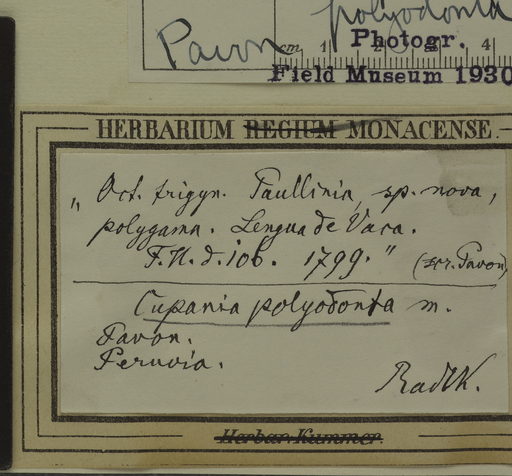 Pavon polyodonta
cm 1 2 4
Photogr.
Field Museum 1930
HERBARIUM REGIUM MONACENSE.
„Oct. trigyn. Paullinia, sp. nova,
polygama. Lengua de Vaca.
F. H. d. 106. 1799." (scr. Pavon)
Cupania polyodonta m.
Pavon.
Peruvia.
Radlk.
Herbar. Kummer.